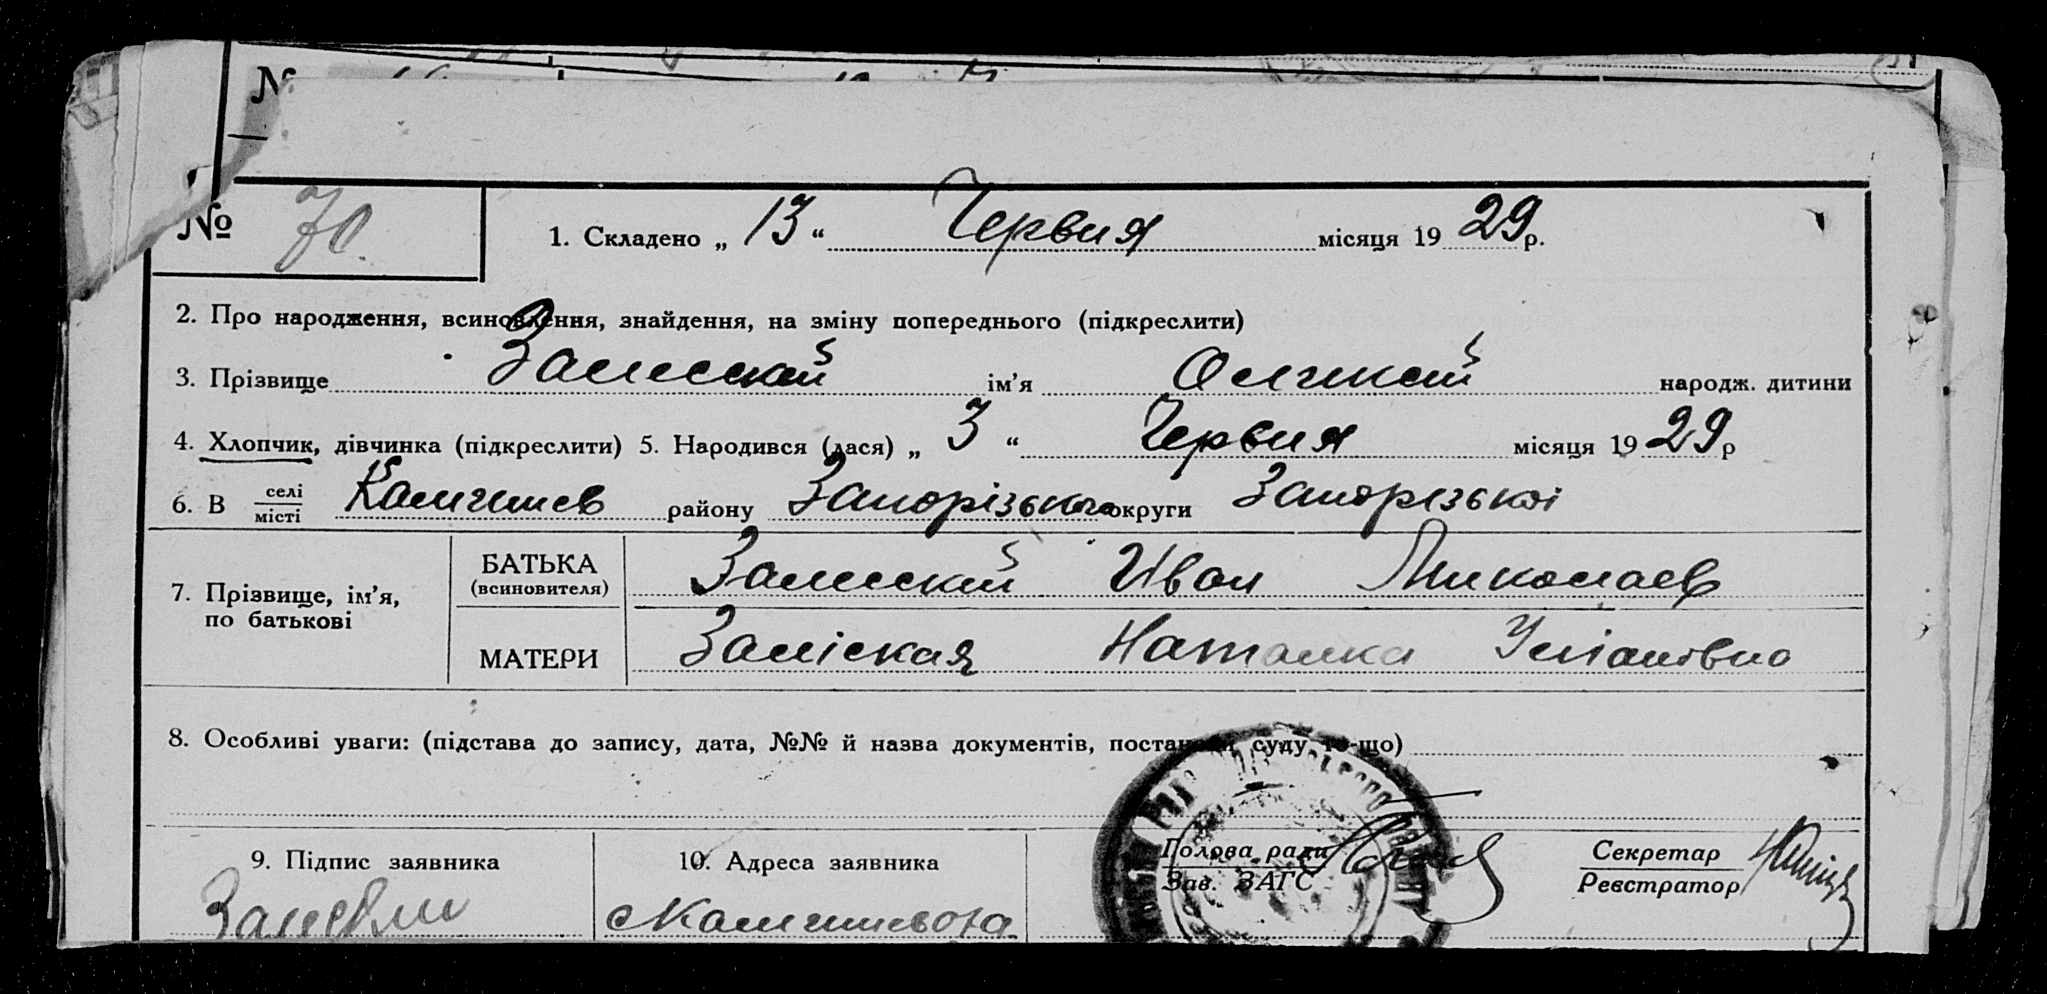 № 70.
1. Складено „ 13 “ Червня місяця 19 29 р.
2. Про народження, всиновлення, знайдення, на зміну попереднього (підкреслити)
3. Прізвище Залеский ім’я народж. дитини
4. Хлопчик, дівчинка (підкреслити) 5. Народився (лася) „ 3 “ Червня місяця 19 29 р
6. В селі місті району Запорізького округи Запорізькоі
7. Прізвище, ім’я, по батькові
БАТЬКА (всиновителя) Залеский Иван Миколаев
МАТЕРИ Заліская Наталка
8. Особливі уваги: (підстава до запису, дата, №№ й назва документів, постанови суду то-що)
9. Підпис заявника
10. Адреса заявника
Голова ради
Зав. ЗАГС
Секретар
Реєстратор